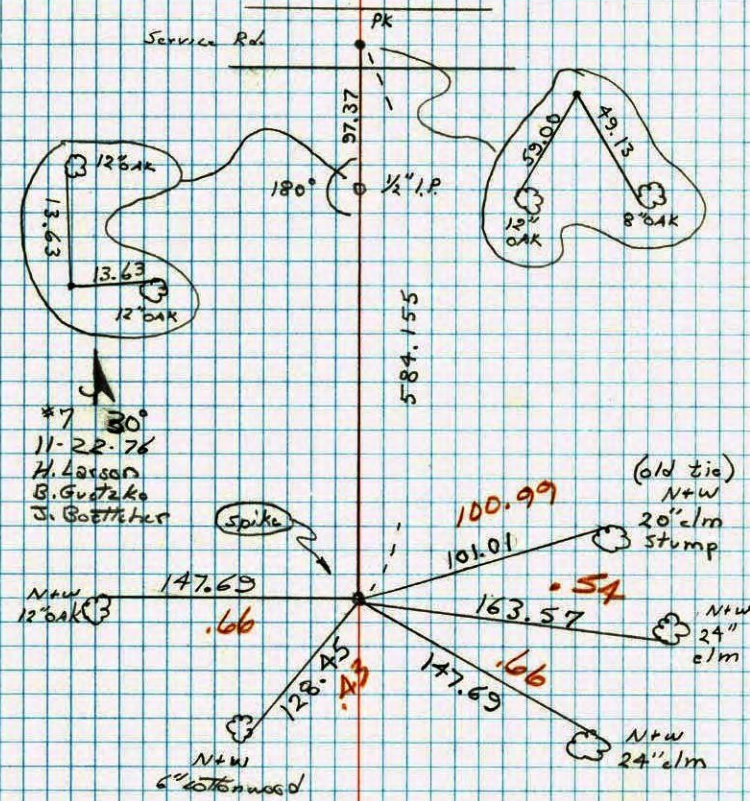 PK
Service Rd.
97.37
180°
1/2" I.P.
12" OAK
13.63
13.63
12" OAK
59.00
49.13
12"
OAK
8" OAK
584.155
#7 30°
11-22-76
H. Larson
B. Gutzke
J. Boettcher
spike
(old tie)
N+W
20" elm
stump
100.99
101.01
.54
163.57
N+W
24"
elm
147.69
.66
N+W
12" OAK
128.45
.43
147.69
.66
N+W
24" elm
N+W
6" cottonwood